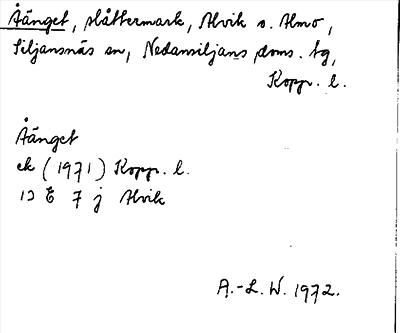 Åänget, slåttermark, Alvik o. Almo,
Siljansnäs sn, Nedansiljans doms. tg,
Kopp. l.
Åänget
ek (1971) Kopp. l.
13 E 7 j Alvik
A.-L. W. 1972.